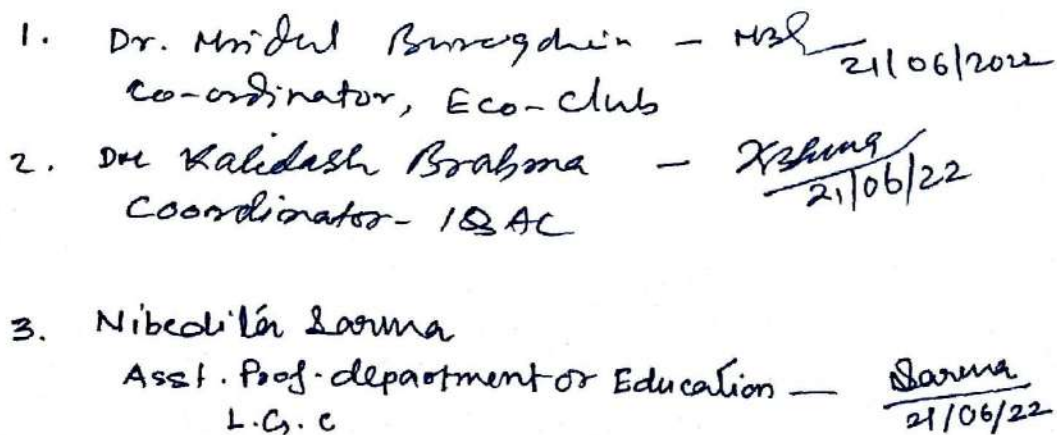 1. Dr. Mridul Buragohain - MBL 21/06/2022
Co-ordinator, Eco-Club
2. Dr Kalidash Brahma - KBhma 21/06/22
Coordinator - IQAC
3. Nibedita Sarma
Asst. Prof. department or Education — Sarma 21/06/22
L.G.C